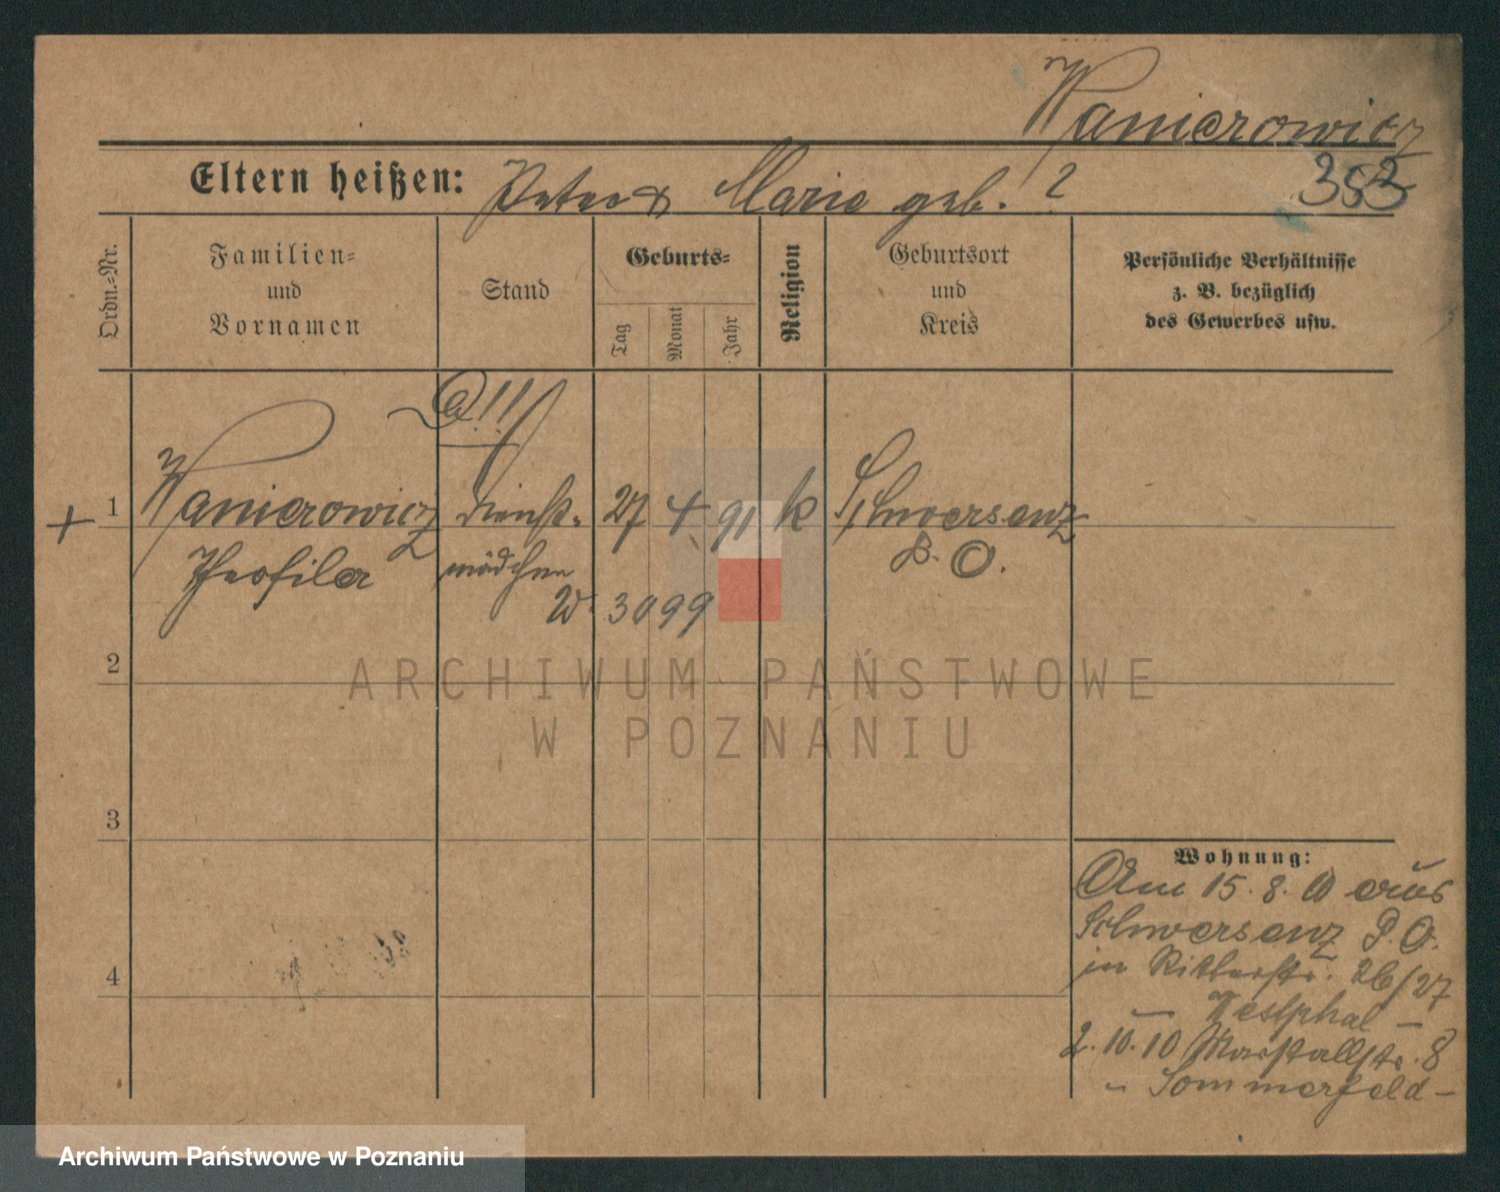 Wanierowicz
353
Eltern heißen: Peter & Marie geb. ?
Ordn.-Nr.
Familien- und Vornamen
Stand
Geburts-
Tag
Monat
Jahr
Religion
Geburtsort und Kreis
Persönliche Verhältnisse
z. B. bezüglich
des Gewerbes usw.
!!
+ 1 Wanierowicz Dienst- 27 4 91 k Schwersenz
Theofila mädchen P. O.
W. 3099
2
3
4
Wohnung:
Am 15.8.10 aus
Schwersenz P. O.
in Ritterstr. 26/27
– Westphal –
2.10.10 Marstallstr. 8
– Sommerfeld –
ARCHIWUM PAŃSTWOWE
W POZNANIU
Archiwum Państwowe w Poznaniu